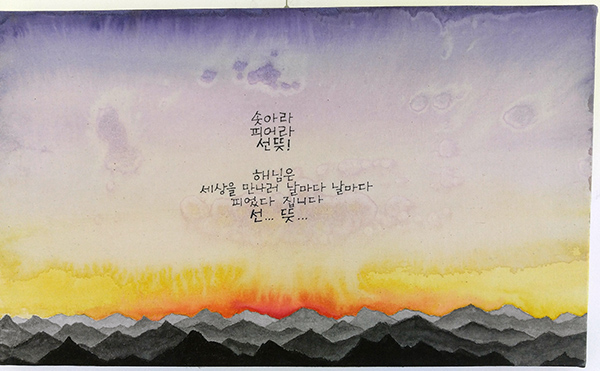 솟아라
피어라
선뜻!
해님은
세상을 만나러 날마다 날마다
피었다 집니다
선... 뜻...